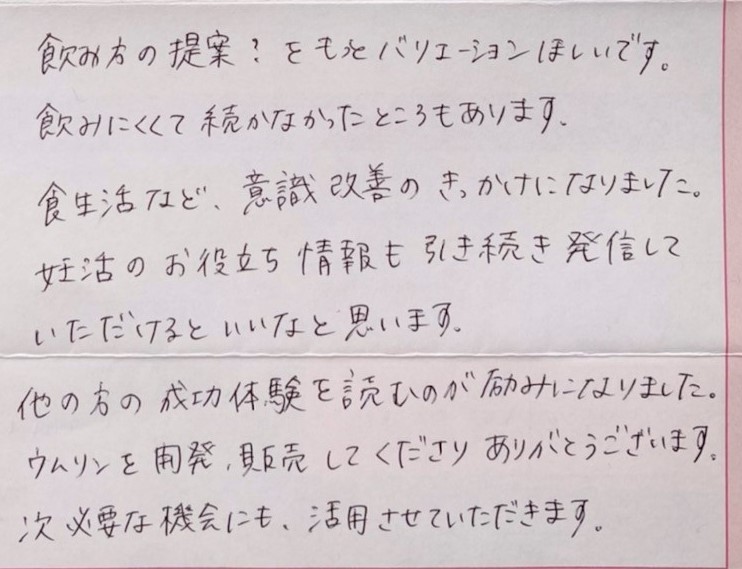 飲み方の提案？をもっとバリエーションほしいです。
飲みにくくて続かなかったところもあります。
食生活など、意識改善のきっかけになりました。
妊活のお役立ち情報も引き続き発信して
いただけるといいなと思います。
他の方の成功体験を読むのが励みになりました。
ウムリンを開発、販売してくださりありがとうございます。
次必要な機会にも、活用させていただきます。